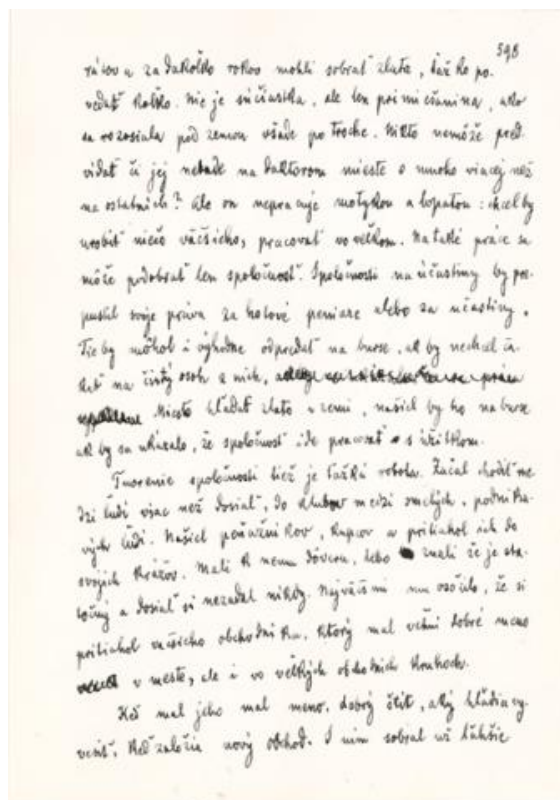 598
za dakoľko rokov mohli sobrať zlata, ťažko po-
vedať koľko. Nie je súčiastka, ale len primiešanina, ako
sa rozosiala pod zemou všade po troche. Nikto nemôže pred-
vídať či jej nebude na daktorom mieste o mnoho viacej než
na ostatních? Ale on nepracuje motykou a lopatou: chcel by
urobiť niečo väčšieho, pracovať vo veľkom. Na také práce sa
môže podobrať len spoločnosť. Spoločnosti na účastiny by pre-
pustil svoje práva za hotové peniaze alebo za účastiny.
Tie by mohol i výhodne odpredať na burse, ak by nechcel ča-
kať na čistý osoh z nich,
Miesto hľadať zlato v zemi, našiel by ho na burse
ak by sa ukázalo, že spoločnosť ide pracovať s úžitkom.
Tvorenie spoločnosti tiež je ťažká robota. Začal chodiť me-
dzi ľudí viac než dosiaľ, do klubov medzi smelých, podnika-
vých ľudí. Našiel peňažníkov, kupcov a pritiahol ich do
svojich krážov. Mali k nemu dôveru, lebo znali že je sta-
točný a dosiaľ si nezadal nikdy. Najväčšmi mu osožilo, že si
pritiahol väčšieho obchodníka, ktorý mal veľmi dobré meno
v meste, ale i vo veľkých obchodních kruhoch.
Keď mal jeho meno, dobrý štít, aký hľadia vy-
vesiť, keď založia nový obchod. S ním sobral už ľahšie